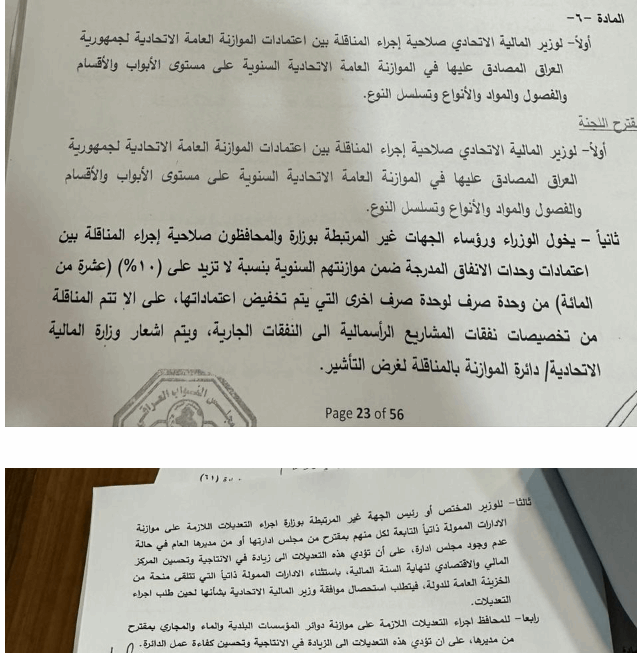 المادة -٦-
أولاً- لوزير المالية الاتحادي صلاحية إجراء المناقلة بين اعتمادات الموازنة العامة الاتحادية لجمهورية
العراق المصادق عليها في الموازنة العامة الاتحادية السنوية على مستوى الأبواب والأقسام
والفصول والمواد والأنواع وتسلسل النوع.
مقترح اللجنة
أولاً- لوزير المالية الاتحادي صلاحية إجراء المناقلة بين اعتمادات الموازنة العامة الاتحادية لجمهورية
العراق المصادق عليها في الموازنة العامة الاتحادية السنوية على مستوى الأبواب والأقسام
والفصول والمواد والأنواع وتسلسل النوع.
ثانياً – يخول الوزراء ورؤساء الجهات غير المرتبطة بوزارة والمحافظون صلاحية إجراء المناقلة بين
اعتمادات وحدات الانفاق المدرجة ضمن موازنتهم السنوية بنسبة لا تزيد على (١٠%) (عشرة من
المائة) من وحدة صرف لوحدة صرف اخرى التي يتم تخفيض اعتماداتها، على الا تتم المناقلة
من تخصيصات نفقات المشاريع الرأسمالية الى النفقات الجارية، ويتم اشعار وزارة المالية
الاتحادية/ دائرة الموازنة بالمناقلة لغرض التأشير.
مجلس النواب العراقي
Page 23 of 56
ثالثا- للوزير المختص أو رئيس الجهة غير المرتبطة بوزارة اجراء التعديلات اللازمة على موازنة
الادارات الممولة ذاتياً التابعة لكل منهم بمقترح من مجلس ادارتها أو من مديرها العام في حالة
عدم وجود مجلس ادارة، على أن تؤدي هذه التعديلات الى زيادة في الانتاجية وتحسين المركز
المالي والاقتصادي لنهاية السنة المالية، باستثناء الادارات الممولة ذاتياً التي تتلقى منحة من
الخزينة العامة للدولة، فيتطلب استحصال موافقة وزير المالية الاتحادية بشأنها لحين طلب اجراء
التعديلات.
رابعا- للمحافظ اجراء التعديلات اللازمة على موازنة دوائر المؤسسات البلدية والماء والمجاري بمقترح
من مديرها، على ان تؤدي هذه التعديلات الى الزيادة في الانتاجية وتحسين كفاءة عمل الدائرة.